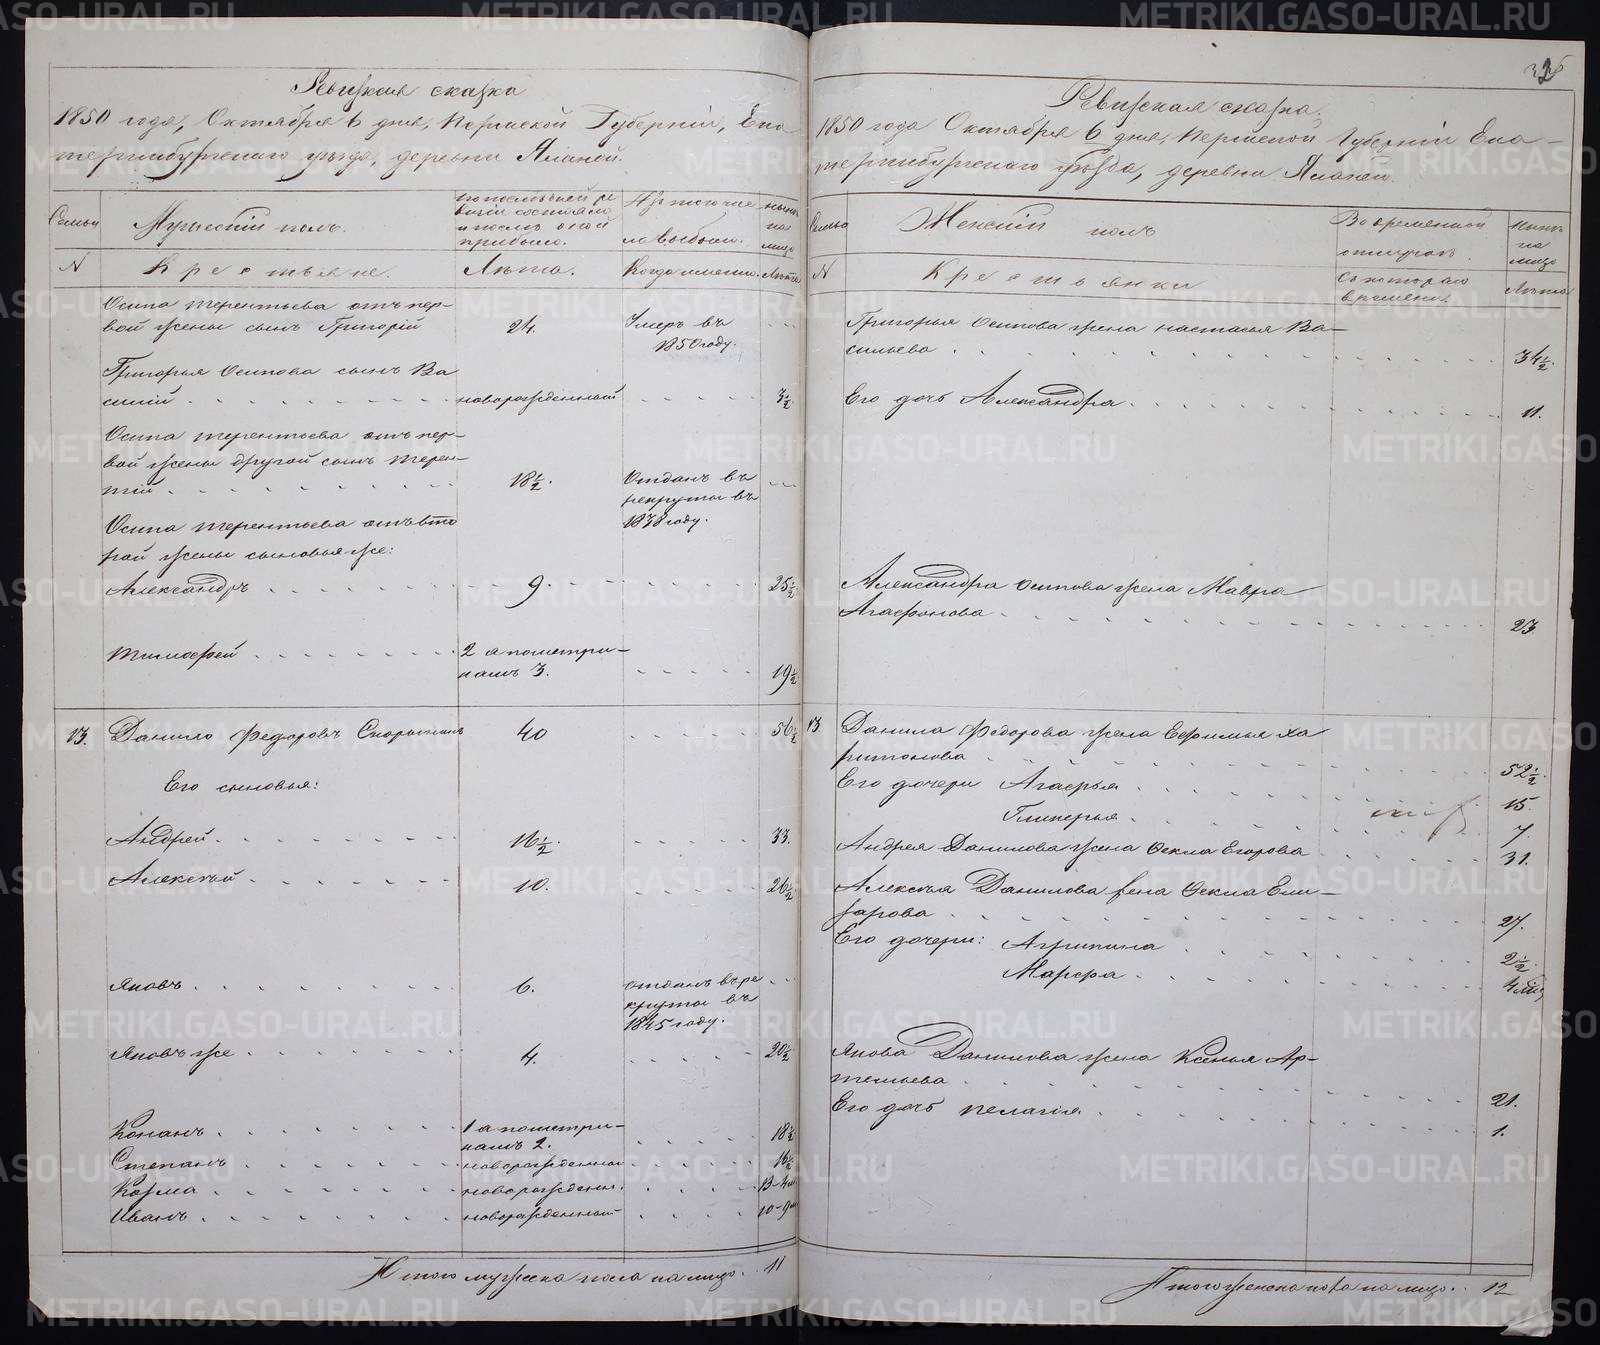 Ревизская сказка
1850 года, Октября 6 дня, Пермской Губерніи, Ека
теринбургскаго уѣзда, деревни Яланей.
Семьи
Мужескій полъ.
по послѣдней ре
визіи состояло
и послѣ оной
прибыло.
Изъ того чис
ла выбыло.
нынѣ
на
лицо
N
Крестьяне.
Лѣта.
Когда именно.
Лѣта
Осипа Терентьева отъ пер-
вой жены сынъ Григорій
24.
Умеръ въ
1850 году.
Григорья Осипова сынъ Ва
силій
новорожденный
3½
Осипа Терентьева отъ пер-
вой жены другой сынъ Терен-
тій
18½.
отданъ въ
рекруты въ
году.
Осипа Терентьева отъ вто
рой жены сыновья же:
Александръ
9.
25½
Тимофей
2 а по метри-
камъ 3.
19½
13.
Данило Федоровъ
40
56½
Его сыновья:
Андрей.
16½.
33.
Алексѣй
10.
26½
Яковъ
6.
отданъ въ ре
круты въ
1845 году.
Яковъ же
4.
20½
Кононъ
1 а по метри-
камъ 2.
18½
Степанъ
новорожденны
16½
Козма
новорожден.
13-4м
Иванъ
новорожденный
10-9м
Итого мужеска пола на лицо. 11
2
Ревизская сказка.
1850 года Октября 6 дня, Пермской Губерніи Ека-
теринбургскаго уѣзда, деревни Яланей.
Семьи
Женскій полъ
Во временной
отлучкѣ.
нынѣ
на
лицо
N
Крестьянки
Съ котораго
времени.
Лѣта
Григорья Осипова жена Настасья Ва-
сильева
34½.
Его дочь Александра.
11.
Александра Осипова жена Мавра
Агафонова
23
13.
Данила Федорова жена Ефимья Ха
ритонова
52½.
Его дочери Агафья
15.
Гликерья
7.
Андрея Данилова жена Фекла Егорова
31.
Алексѣя Данилова жена Фекла Ели-
зарова
27.
Его дочери: Агрипина
2½.
Марфа
4 мѣс
Якова Данилова жена Ксенья Ар-
темьева
21.
Его дочь Пелагія
1.
Итого женска пола на лицо. 12
METRIKI.GASO-URAL.RU